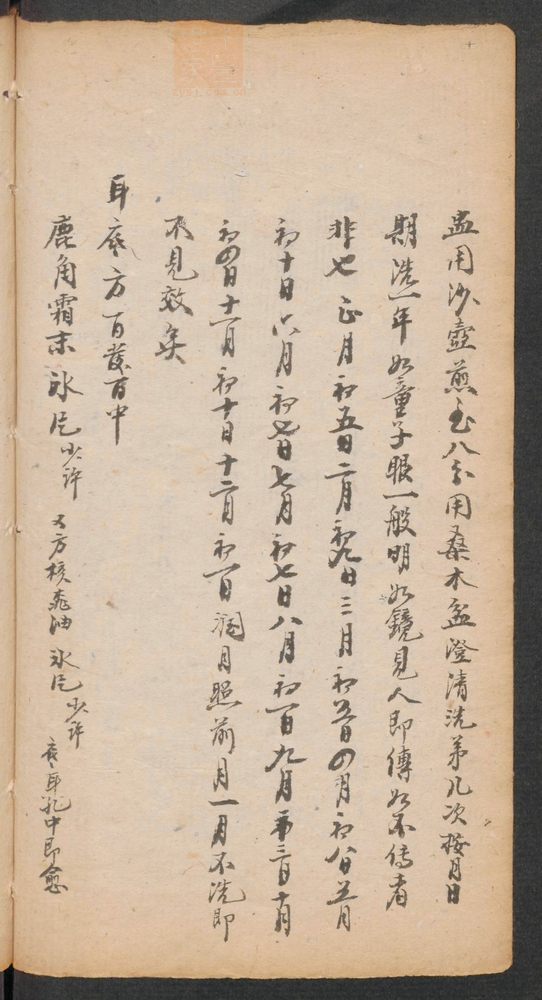 盃用沙壺煎至八分用桑木盆澄清洗第几次按月日
期洗一年如童子眼一般明如鏡見人即傳如不傳者
非也 正月初五日二月初九日三月初五日四月初八日五月
初十日六月初七日七月初七日八月初一日九月 三日十月
初四日十一月初十日十二月初一日润月照前月一月不洗即
不見效矣
耳底方百發百中
鹿角霜末 氷片少许 又方核桃油 氷片少许 耳孔中即愈